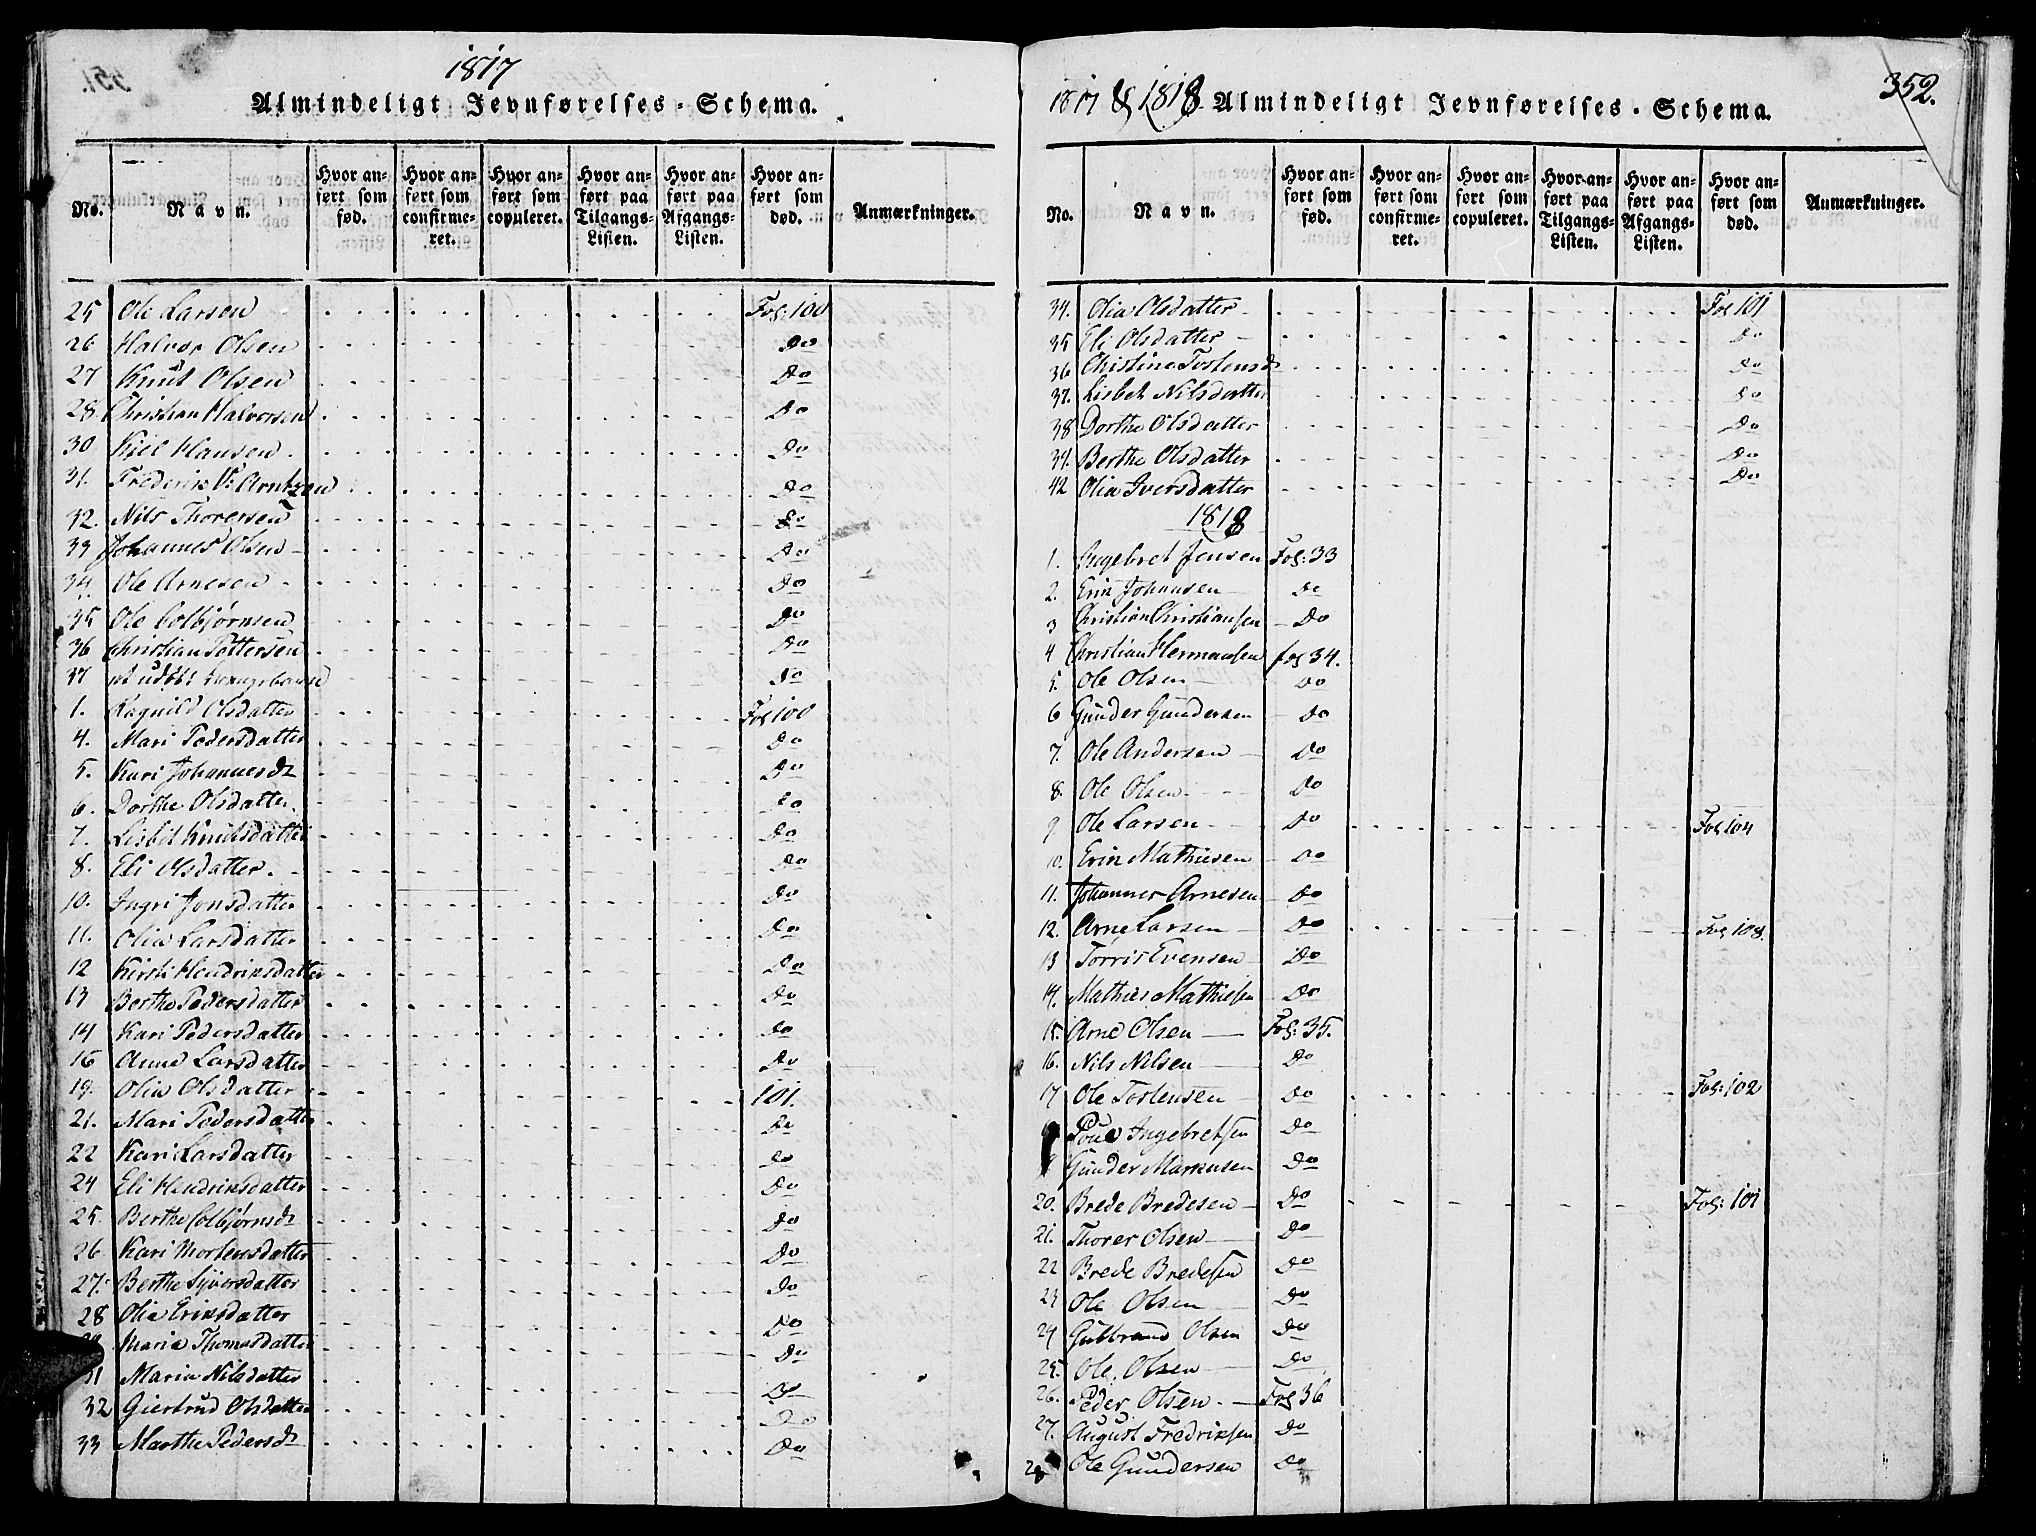 1817
Almindeligt Jevnførelses-Schema.
No. Navn. Hvor anført som fød. Hvor anført som confirmeret. Hvor anført som copuleret. Hvor anført paa Tilgangs-Listen. Hvor anført paa Afgangs-Listen. Hvor anført som død. Anmærkninger.
25 Ole Larsen Fol: 100
26 Halvor Olsen Do
27 Knut Olsen Do
28 Christian Halvorsen Do
30 Kiel Hansen Do
31. Frederik Arntzen Do
32. Nils Thorersen Do
33 Johannes Olsen Do
34 Ole Arnesen Do
35 Ole Colbjørnsen Do
36 Christian Pettersen Do
37 et udøbt Do
1. Ragnild Olsdatter Fol 100
4. Mari Pedersdatter Do
5. Kari Johannesdr Do
6. Dorthe Olsdatter Do
7. Lisbet Knutsdatter Do
8. Eli Olsdatter Do
10. Ingri Jonsdatter Do
11. Olia Larsdatter Do
12 Kirsti Hendriksdatter Do
13 Berthe Pedersdatter Do
14 Kari Pedersdatter Do
16 Anne Larsdatter Do
19. Olia Olsdatter 101.
21. Mari Pedersdatter Do
22 Kari Larsdatter Do
24 Eli Hendriksdatter Do
25. Berthe Colbjørnsdr Do
26 Kari Mortensdatter Do
27. Berthe Syversdatter Do
28 Olia Eriksdatter Do
Maria Thomasdatter Do
31 Maria Nilsdatter Do
32 Giertrud Olsdatter Do
33 Marthe Pedersdr Do
1817 & 1818 Almindeligt Jevnførelses-Schema.
352.
No. Navn. Hvor anført som fød. Hvor anført som confirmeret. Hvor anført som copuleret. Hvor anført paa Tilgangs-Listen. Hvor anført paa Afgangs-Listen. Hvor anført som død. Anmærkninger.
34. Olia Olsdatter Fol 101
35 Eli Olsdatter Do
36 Christine Tostensdr Do
37. Lisbet Nilsdatter Do
38 Dorthe Olsdatter Do
39. Berthe Olsdatter Do
42 Olia Iversdatter Do
1818
1. Ingebret Jensen Fol: 33
2. Erik Johansen Do
3 Christian Christiansen Do
4 Christian Hermansen fol 34.
5. Ole Olsen Do
6 Gunder Gundersen Do
7. Ole Andersen Do
8. Ole Olsen Do
9 Ole Larsen Do Fol 104
10. Erik Mathiesen Do
11. Johannes Arnesen Do
12. Arne Larsen Do Fol 108.
13 Torris Evensen Do
14. Mathies Mathiesen Do
15. Arne Olsen Fol: 35.
16. Nils Nilsen Do
17 Ole Tostensen Do Fol: 102
Poul Ingebretsen Do
Gunder Markusen Do
20. Brede Bredesen Do Fol: 101
21. Thorer Olsen Do
22 Brede Bredesen Do
23 Ole Olsen Do
24 Gulbrand Olsen Do
25. Ole Olsen Do
26. Peder Olsen Fol 36
27. August Fredriksen Do
28 Ole Gundersen Do